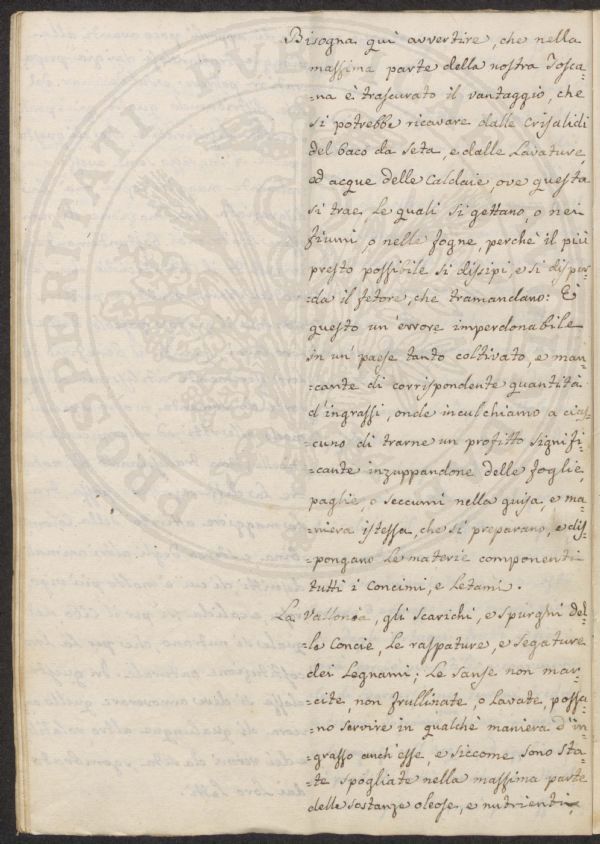 Bisogna quì avvertire, che nella
massima parte della nostra Tosca=
=na è trascurato il vantaggio, che
si potrebbe ricavare dalle Crisalidi
del baco da seta, e dalle Lavature,
ed acque delle Caldaie, ove questa
si trae, le quali si gettano, o nei
fiumi, o nelle fogne, perchè il più
presto possibile si dissipi, e si disper=
=da il fetore, che tramandano: È
questo un'errore imperdonabile
in un paese tanto coltivato, e man=
=cante di corrispondente quantità
d'ingrassi, onde inculchiamo a cias=
=cuno di trarne un profitto signifi=
=cante inzuppandone delle foglie,
paglie, o seccumi nella guisa, e ma=
=niera istessa, che si preparano, e dis=
=pongano le materie componenti
tutti i Concimi, e Letami.
La Vallonea, gli scarichi, e spurghi del=
=le Concie, le raspature, e segature
dei Legnami; le sanse non mar=
=cite, non frullinate, o lavate, possa=
=no servire in qualchè maniera d'in=
=grasso anch'esse, e siccome sono sta=
=te spogliate nella massima parte
delle sostanze oleose, e nutrienti,
PROSPERITATI PUBL